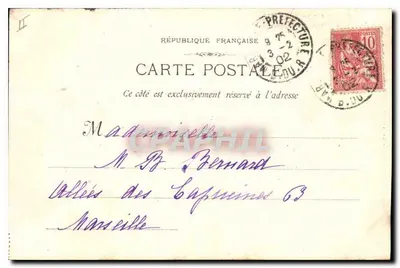 II
RÉPUBLIQUE FRANÇAISE
CARTE POSTALE
Ce côté est exclusivement réservé à l'adresse
PREFECTURE
9
3 -2
02
B.DU.R
PREFECTURE
10
B.DU
Mademoiselle
M. B. Bernard
Allées des Capucines 63
Marseille